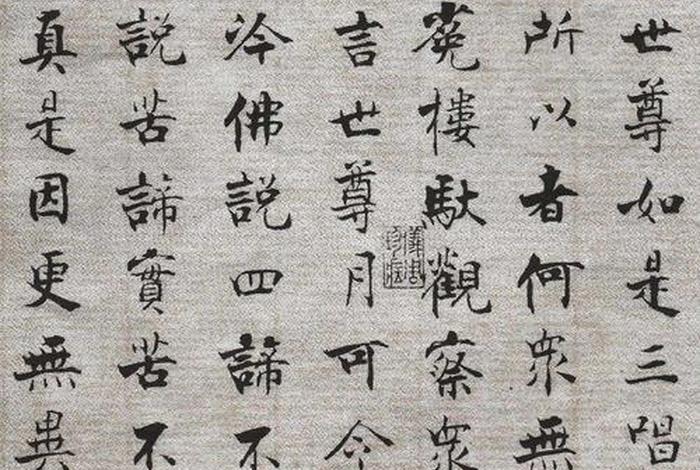 世尊如是三唱
所以者何衆無
樓馱觀察衆
言世尊月可令
冷佛說四諦不
說苦諦實苦不
真是因更無異